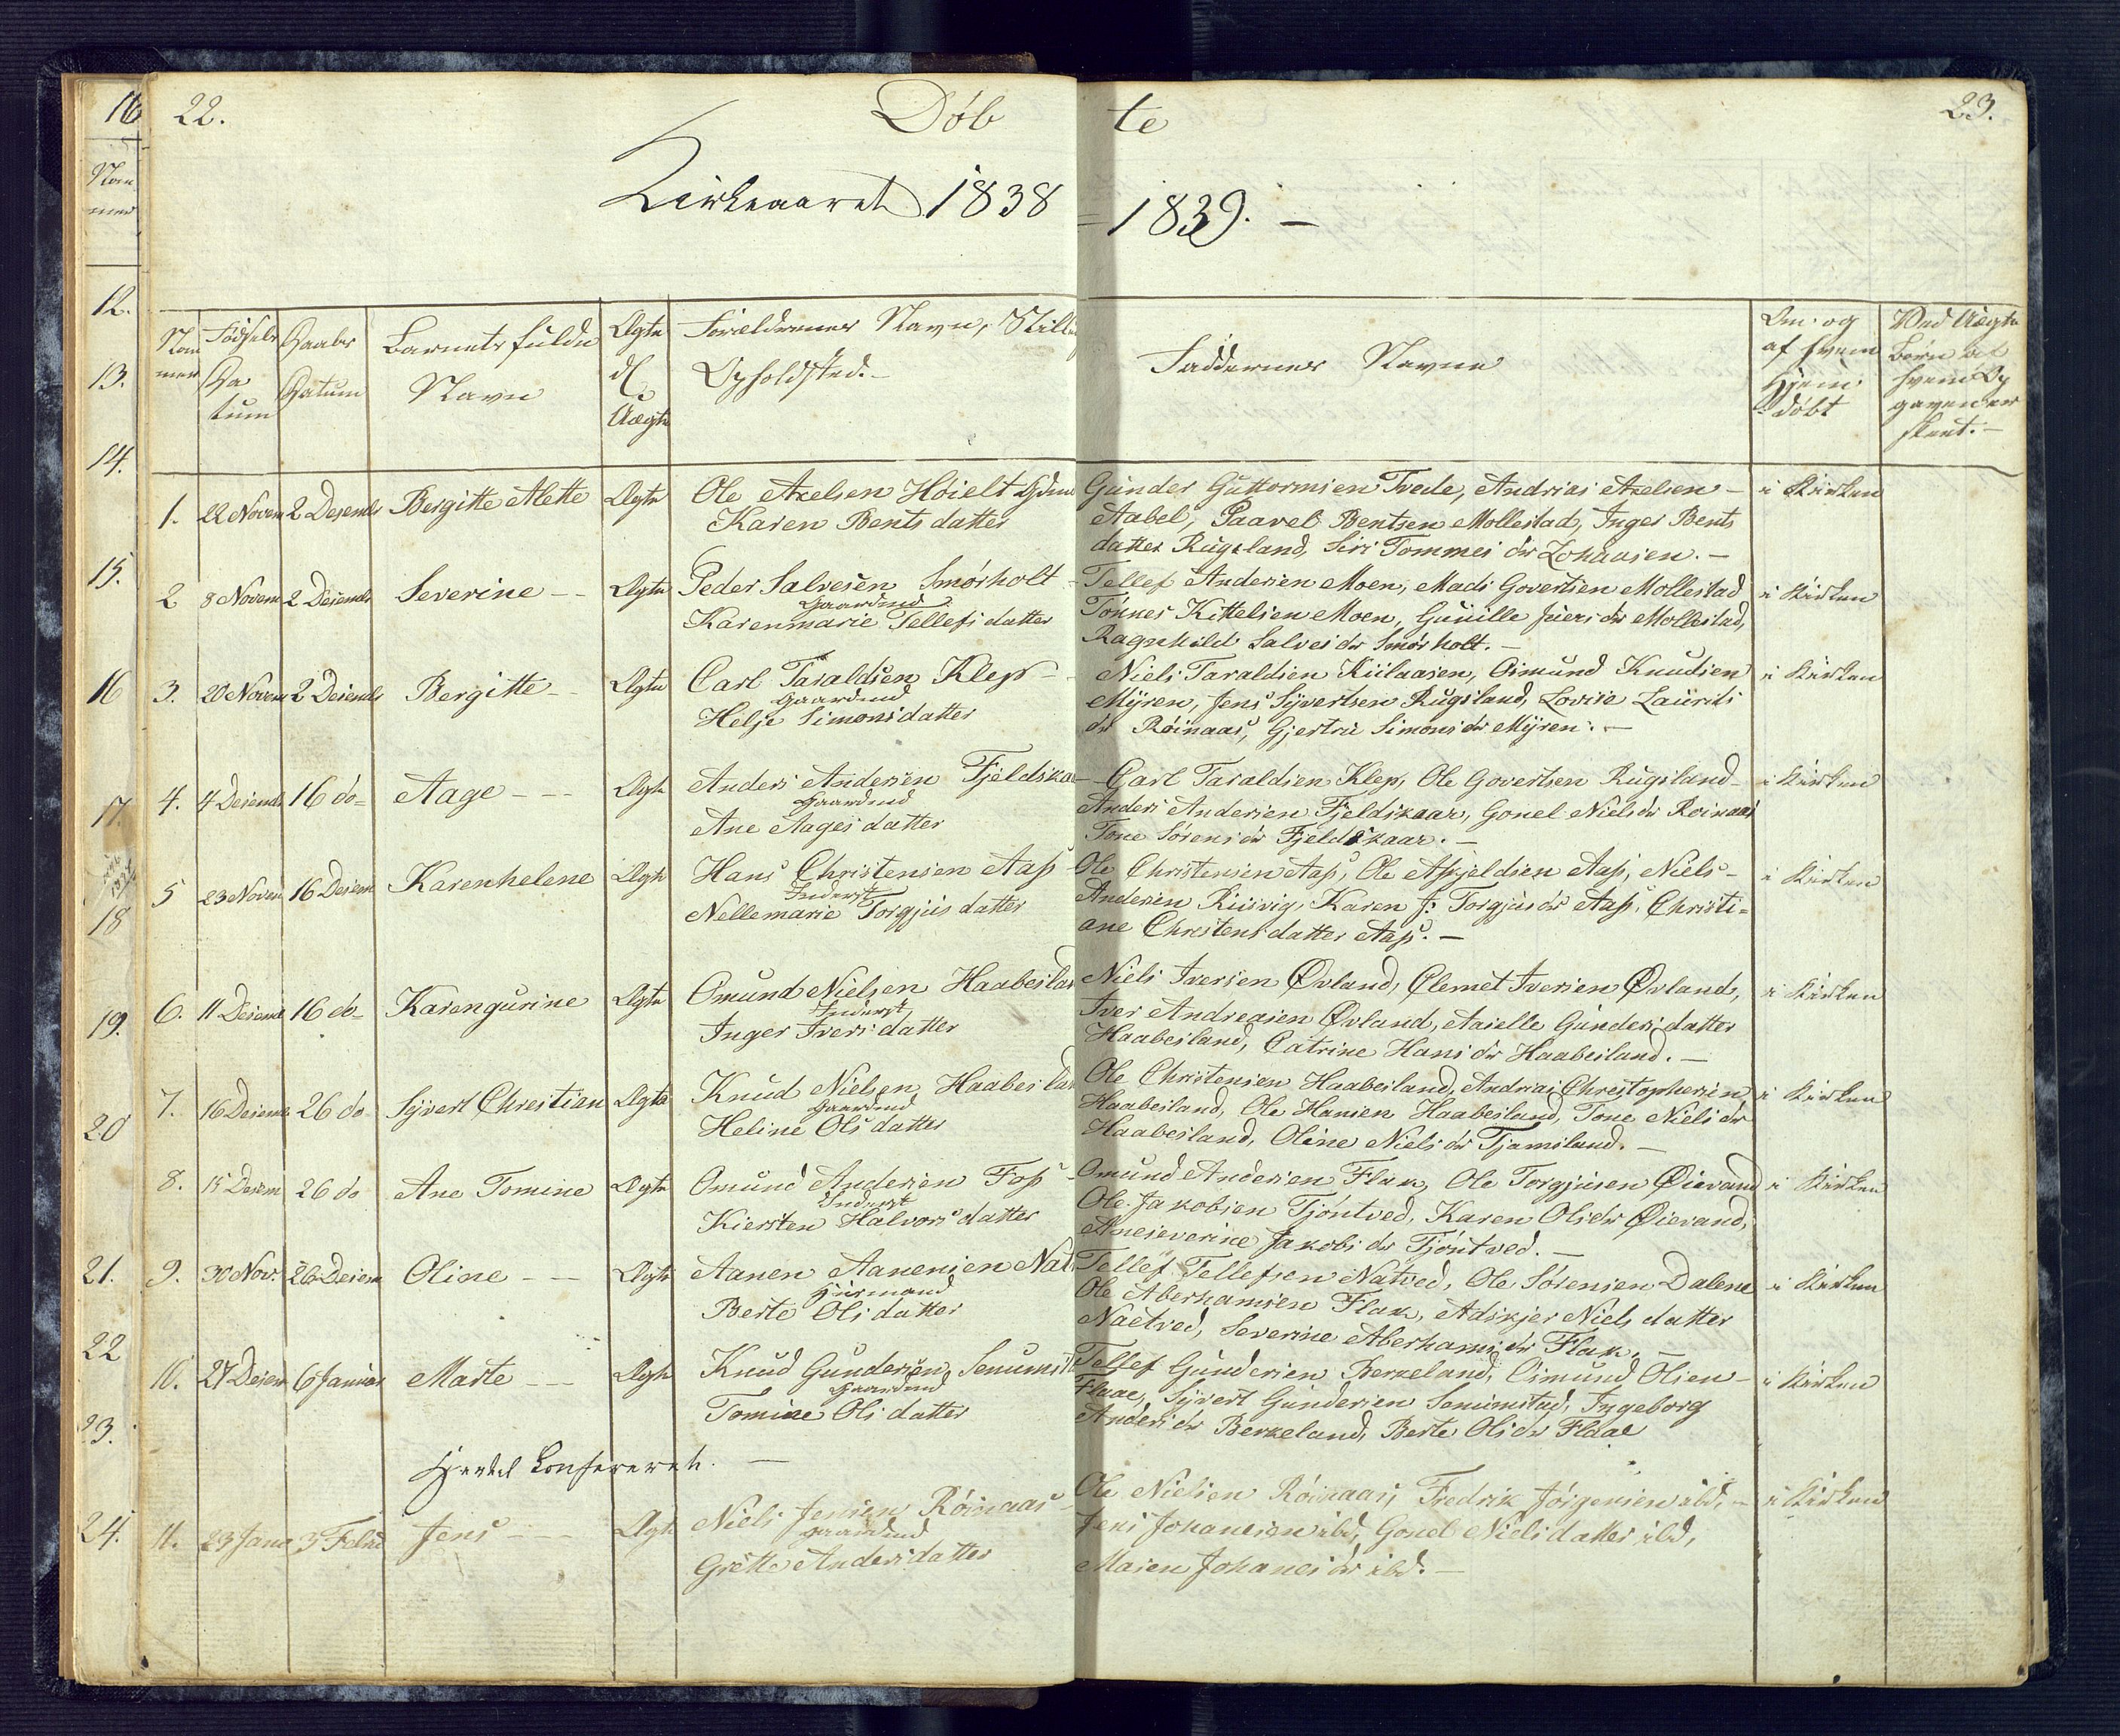 16 22. Døb te 23.
Kirkeaaret 1838 = 1839. —
Num
mer
12.
13.
14.
15.
16
17.
18
19.
20
21.
22
23.
24.
Num
mer
Fødsels
Da
tum
Daabs
Datum
Barnets fulde
Navn
Ægte
el
Uægte
Forældrenes Navn, Still
Opholdsted. –
Faddernes Navne
Om og
af hvem
Hjem
døbt
Ved Uægte
børn af
hvem Op
gaven er
skeet. –
1. 22 Novem 2 Desemb Bergitte Alette Ægte Ole Axelsen Høielt Gdmd
Karen Bents datter
Gunder Guttormsen Tvede, Andrias Axelsen – i Kirken
Aabel, Paavel Bentsen Mollestad, Inger Bents
datter Rugsland, Siri Tommes dr Lohaasen. –
2 8 Novem 2 Desemb Severine – – Ægte Peder Salvesen Smørholt –
Gaardmd
Karenmarie Tellefs datter
Tellef Andersen Moen, Mads Govertsen Mollestad i Kirken
Tønnes Kittelsen Moen, Gunille Juers dr Mollestad,
Ragnhild Salves dr Smørholt. –
3. 20 Novem 2 Desemb Bergitte – – Ægte Carl Taraldsen Klep –
Gaardmd
Helje Simons datter
Niels Taraldsen Riilaasen, Osmund Knudsen i Kirken
Myren, Jens Syvertsen Rugsland, Lovise Laurits
dr Røinaas, Gjertru Simons dr Myren. –
4. 4 Desemb 16 do – Aage – – – Ægte Anders Andersen Fjeldska
Gaardmd
Ane Aages datter
Carl Taraldsen Klep, Ole Govertsen Rugsland – i Kirken
Anders Andersen Fjeldskaar, Gonel Niels dr Roinaas
Tone Sørens dr Fjeldskaar. –
5 23 Novem 16 Desem Karenhelene Ægte Hans Christensen Aas –
Inderst
Nellemarie Torgjus datter
Ole Christensen Aas, Ole Askjeldsen Aas, Niels – i Kirken
Andersen Riisvig, Karen J: Torgjus dr Aas, Christi=
ane Christens datter Aas. –
6. 11 Desemb 16 do – Karengurine Ægte Omund Nielsen Haabeslan
Inderst
Inger Ivers datter
Niels Iversen Øvland, Clemet Iversen Øvland, i Kirken
Iver Andreasen Øvland, Aaselle Gunders datter
Haabesland, Catrine Hans dr Haabesland. –
7. 16 Desemb 26 do Syvert Christian Ægte Knud Nielsen Haabeslan
Gaardmd
Heline Ols datter
Ole Christensen Haabesland, Andreas Christophersen i Kirken
Haabesland, Ole Hansen Haabesland, Tone Niels dr
Haabesland, Oline Niels dr Tjamsland. –
8. 15 Desem 26 do Ane Tomine Ægte Omund Andersen Fos –
Inderst
Kiersten Halvors datter
Omund Andersen Flak, Ole Torgjusen Øievand i Kirken
Ole Jakobsen Tjøntved, Karen Ols dr Øievand,
Aneseverine Jakobs dr Tjøntved. –
9. 30 Nov. 26 Desem Oline – – – Ægte Aanen Aanensen Nat
Huusmand
Berte Ols datter
Tellef Tellefsen Natved, Ole Sørensen Dalene i Kirken
Ole Aberhamsen Flak, Adskjer Niels datter
Naetved, Severine Aberhams dr Flak. –
10. 27 Desem 6 Januar Marte – – – Ægte Knud Gundersen Senumst
Gaardmd
Tomine Ols datter
Tellef Gundersen Berkeland, Osmund Olsen – i Kirken
Flaae, Syvert Gundersen Senumstad, Ingeborg
Anders dr Berkeland, Berte Ols dr Flaae
Hertil Confereret. –
11. 23 Janu 3 Febru Jens – – – Ægte Niels Jensen Røinaas –
Gaardmd
Grette Anders datter
Ole Nielsen Røinaas, Fredrik Jørgensen ibd, – i Kirken
Jens Johanesen ibd, Gonel Niels datter ibd,
Maren Johanes dr ibd. –